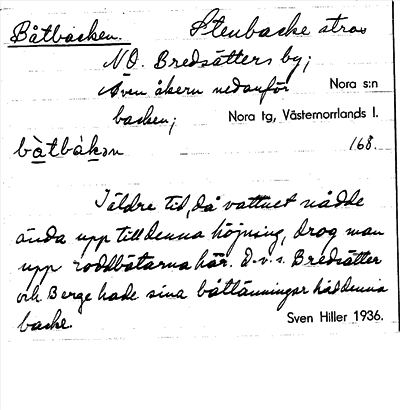 Båtbacken. Stenbacke strax
NO. Bredsätters by;
Även åkern nedanför Nora s:n
backen; Nora tg, Västernorrlands l.
bàtbàkən 168.
I äldre tid, då vattnet nådde
ända upp till denna höjning, drog man
upp roddbåtarna här. D.v.s. Bredsätter
och Berge hade sina båtlänningar här denna
backe. Sven Hiller 1936.